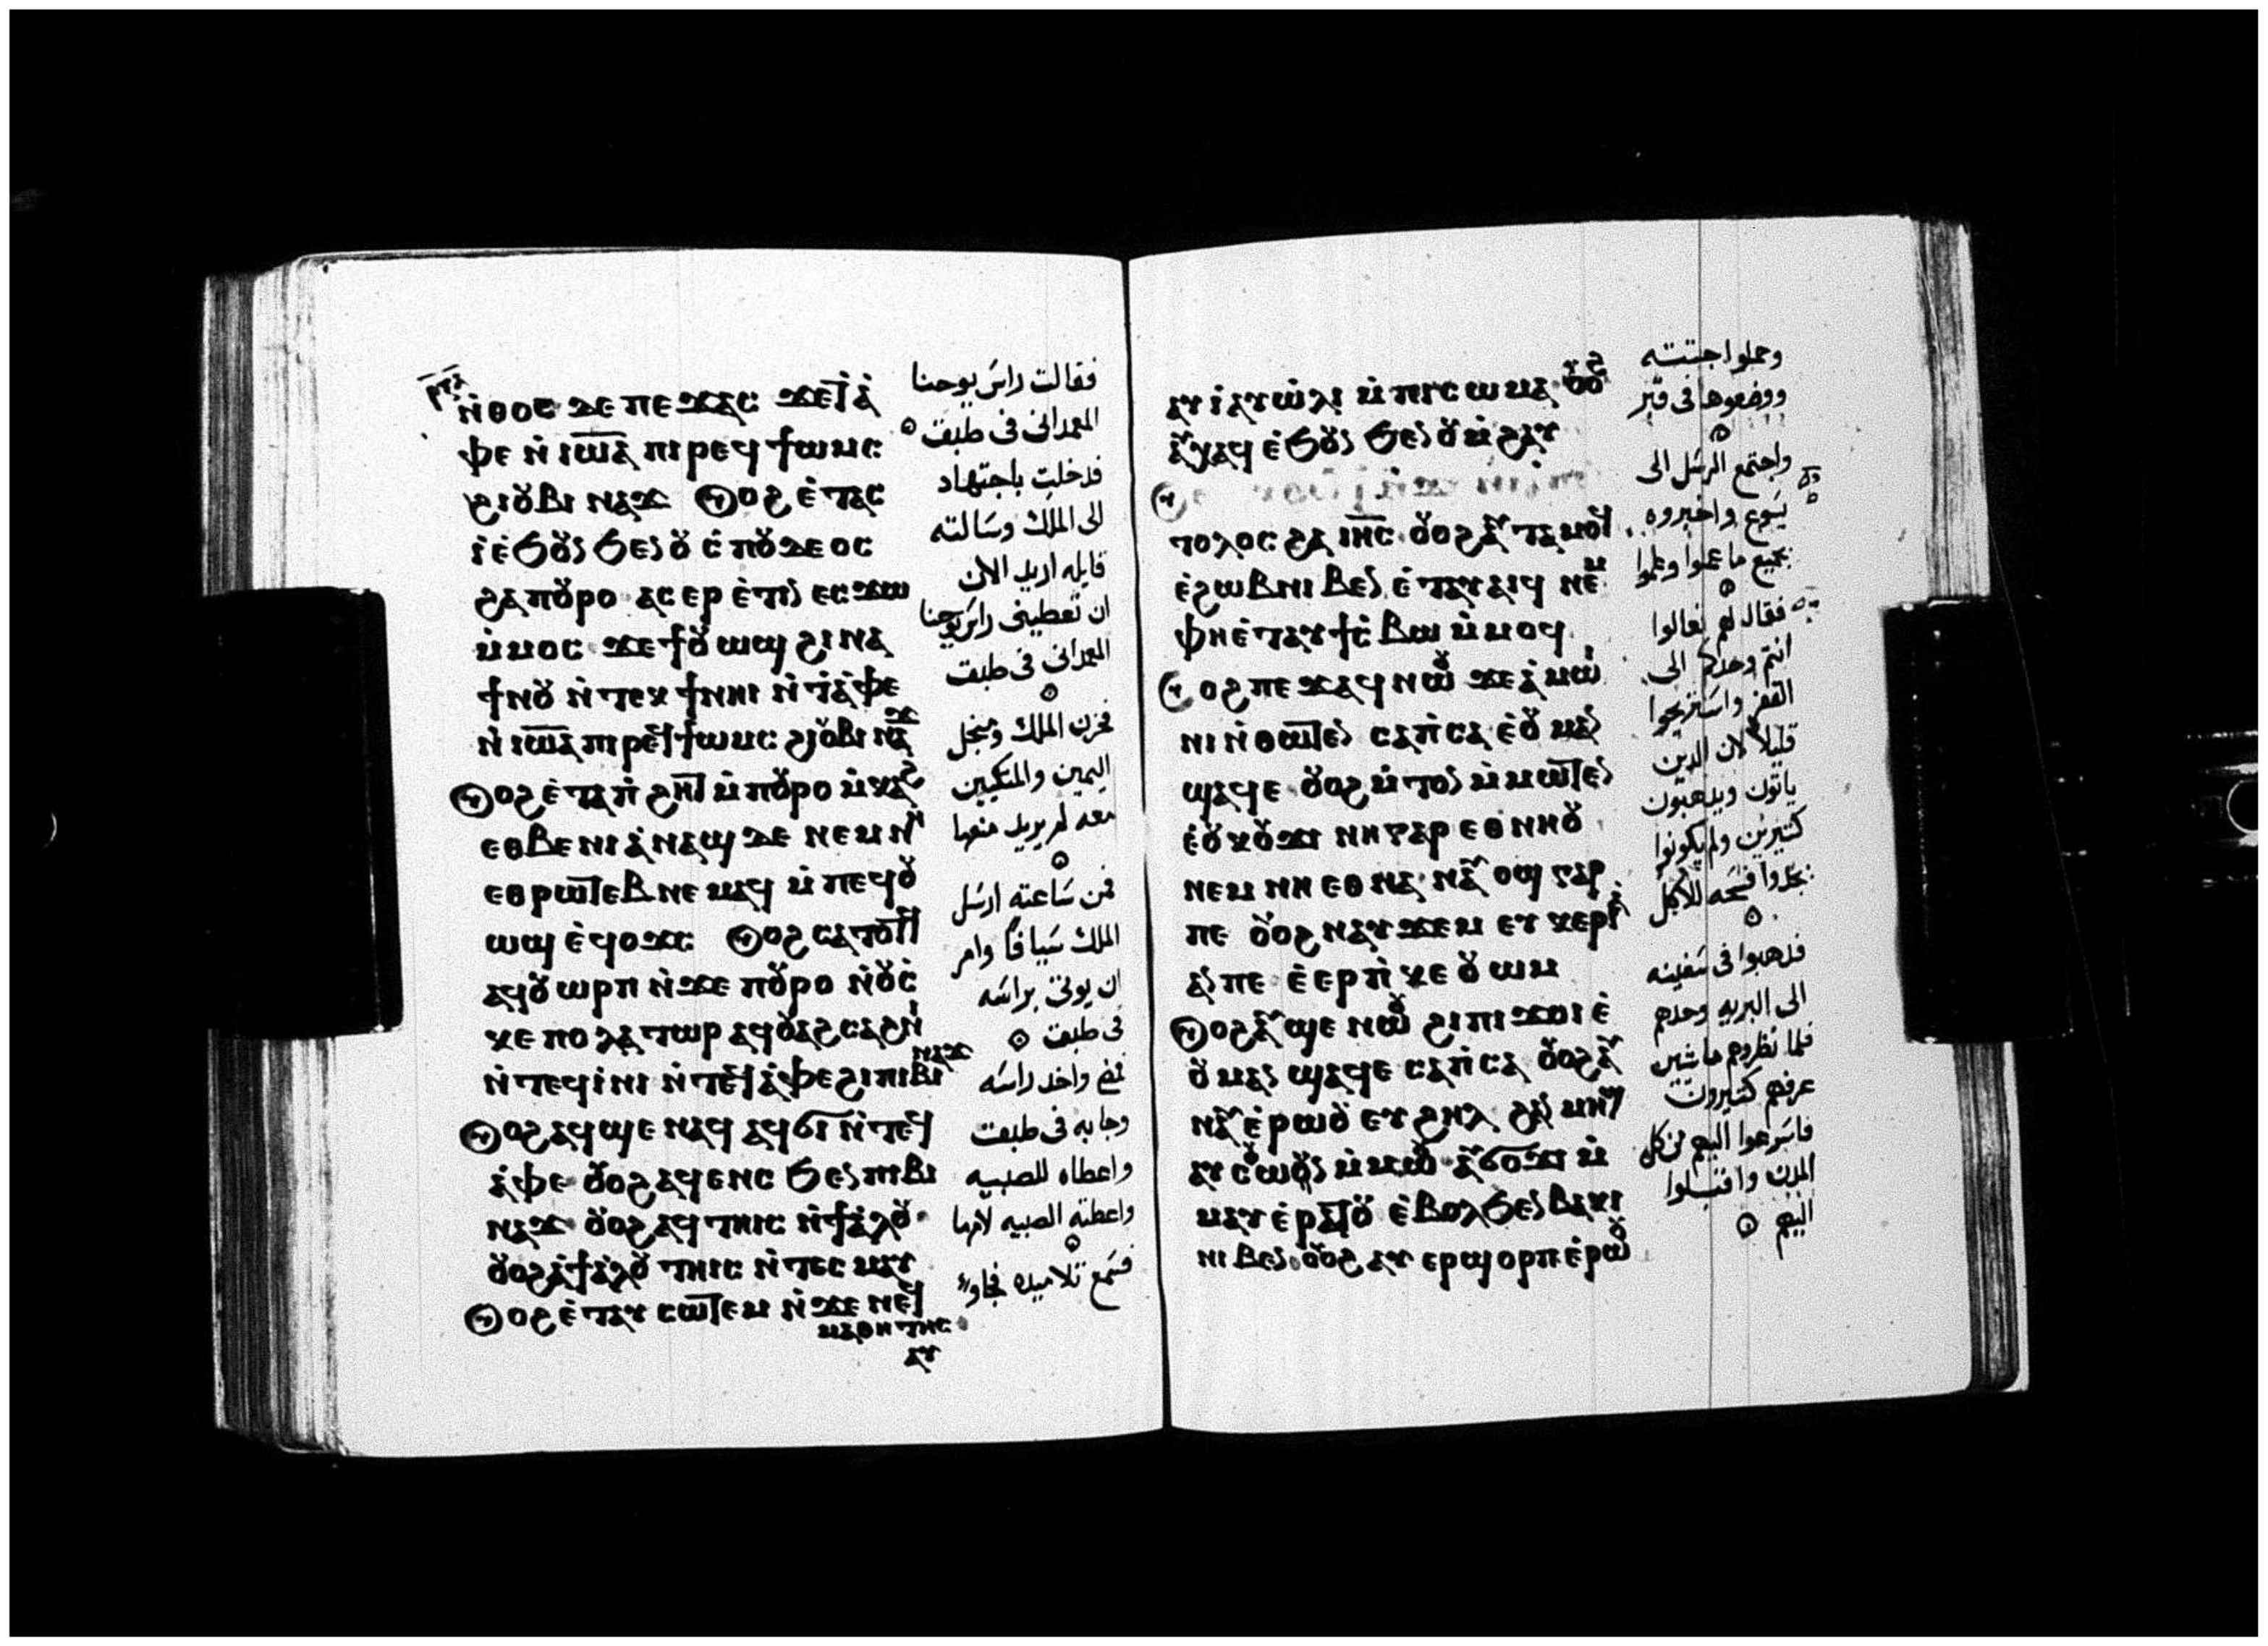 ⲣⲇⲁ
ⲛ̇ⲑⲟⲥ ⲇⲉ ⲡⲉϫⲁⲥ ϫⲉⲧ̇ⲁ̇
ⲫⲉ ⲛ̇ⲓⲱ̅ⲁ̅ ⲡⲓⲣⲉϥϯⲱⲙⲥ
ϩⲓⲟⲩⲃⲓⲛⲁϫ ⲟⲩⲟϩ ⲉ̇ⲧⲁⲥ
ⲓ̇ⲉ̇ϧⲟⲩⲛ ϧⲉⲛⲟⲩⲥ̇ⲡⲟⲩⲇⲉⲟⲥ
ϩⲁⲡⲟⲩⲣⲟ ⲁⲥⲉⲣⲉ̇ⲧⲓⲛ ⲉⲥϫⲱ
ⲙ̇ⲙⲟⲥ ϫⲉϯⲟⲩⲱϣ ϩⲓⲛⲁ
ϯⲛⲟⲩ ⲛ̇ⲧⲉⲕϯⲛⲏⲓ ⲛ̇ⲧ̇ⲁ̇ⲫⲉ
ⲛ̇ⲓⲱ̅ⲁ̅ ⲡⲓⲣⲉϥϯⲱⲙⲥ ϩⲓⲟⲩⲃⲓⲛⲁϫ
ⲟⲩⲟϩ ⲉ̇ⲧⲁⲡ̇ϩⲏⲧ ⲙ̇ⲡⲟⲩⲣⲟ ⲙ̇ⲕⲁϩ
ⲉⲑⲃⲉ ⲛⲓⲁ̇ⲛⲁϣ ⲇⲉ ⲛⲉⲙ ⲛⲏ
ⲉⲑⲣⲱⲧⲉⲃ ⲛⲉⲙⲁϥ ⲙ̇ⲡⲉϥⲟⲩ
ⲱϣ ⲉ̇ϥⲟϫⲥ ⲟⲩⲟϩ ⲥⲁⲧⲟⲧϥ
ⲁϥⲟⲩⲱⲣⲡ ⲛ̇ϫⲉ ⲡⲟⲩⲣⲟ ⲛ̇ⲟⲩⲥ̇
ⲕⲉⲡⲟⲗⲁⲧⲱⲣ ⲁϥⲟⲩⲁϩⲥⲁϩⲛⲓ
ⲛ̇ⲧⲉϥⲓ̇ⲛⲓ ⲛ̇ⲧⲉϥⲁ̇ⲫⲉ ϩⲓⲡⲓⲃⲓⲛⲁϫ
ⲟⲩⲟϩ ⲁϥϣⲉⲛⲁϥ ⲁϥϭⲓ ⲛ̇ⲧⲉϥ
ⲁ̇ⲫⲉ ⲟⲩⲟϩ ⲁϥⲉⲛⲥ ϧⲉⲛⲡⲓⲃⲓ
ⲛⲁϫ ⲟⲩⲟϩ ⲁϥⲧⲏⲓⲥ ⲛ̇ϯⲁ̇ⲗⲟⲩ
ⲟⲩⲟϩ ⲁ̇ϯⲁ̇ⲗⲟⲩ ⲧⲏⲓⲥ ⲛ̇ⲧⲉⲥⲙⲁⲩ
ⲟⲩⲟϩ ⲉ̇ⲧⲁⲩⲥⲱⲧⲉⲙ ⲛ̇ϫⲉ ⲛⲉϥ
ⲙⲁⲑⲏⲧⲏⲥ
ⲁⲩ
فقالت راس يوحنا
المعمدانى فى طبق
فدخلت باجتهاد
الى الملك وسالته
قايله اريد الان
ان تعطينى راس يوحنا
المعمدانى فى طبق
فحزن الملك ومن اجل
اليمين والمتكيين
معه لم يريد منعها
فمن ساعته ارسل
الملك سيافًا وامر
ان يوتى براسه
فى طبق
فمضى واخد راسه
وجا به فى طبق
واعطاه للصبيه
واعطته الصبيه لامها
فسمع تلاميده فجاوا
ⲁⲩⲓ̇ ⲁⲩⲱ̇ⲗⲓ ⲙ̇ⲡⲓⲥⲱⲙⲁ ⲟⲩⲟϩ
ⲁⲩⲭⲁϥ ⲉ̇ϧⲟⲩⲛ ϧⲉⲛⲟⲩⲙ̇ϩⲁⲩ
ⲧⲟⲗⲟⲥ ϩⲁ ⲓⲏ̅ⲥ̅ ⲟⲩⲟϩ ⲁⲩⲧⲁⲙⲟϥ
ⲉ̇ϩⲱⲃ ⲛⲓⲃⲉⲛ ⲉ̇ⲧⲁⲩⲁⲓϥ ⲛⲉⲙ
ⲫⲏⲉ̇ⲧⲁⲩϯⲥ̇ⲃⲱ ⲙ̇ⲙⲟϥ
ⲟⲩⲟϩ ⲡⲉϫⲁϥ ⲛⲱⲟⲩ ϫⲉ ⲁ̇ⲙⲱⲓ
ⲛⲓ ⲛ̇ⲑⲱⲧⲉⲛ ⲥⲁⲡ̇ⲥⲁ ⲉ̇ⲟⲩⲙⲁⲛ
ϣⲁϥⲉ ⲟⲩⲟϩ ⲙ̇ⲧⲟⲛ ⲙ̇ⲙⲱⲧⲉⲛ
ⲉ̇ⲟⲩⲕⲟⲩϫⲓ ⲛⲏ ⲅⲁⲣ ⲉⲑⲛⲏⲟⲩ
ⲛⲉⲙ ⲛⲏ ⲉⲑⲛⲁ ⲛⲁⲩⲟϣ ⲅⲁⲣ
ⲡⲉ ⲟⲩⲟϩ ⲛⲁⲩϫⲉⲙ ⲉⲩⲕⲉⲣⲓ
ⲁⲛ ⲡⲉ ⲉ̇ⲉⲣⲡ̇ⲕⲉⲟⲩⲱⲙ
ⲟⲩⲟϩ ⲁⲩϣⲉ ⲛⲱⲟⲩ ϩⲓⲡⲓϫⲟⲓ ⲉ̇
ⲟⲩⲙⲁⲛ ϣⲁϥⲉ ⲥⲁⲡ̇ⲥⲁ ⲟⲩⲟϩ ⲁⲩ
ⲛⲁⲩ ⲉ̇ⲣⲱⲟⲩ ⲉⲩϩⲏⲗ ϩⲁⲛⲙⲏϣ
ⲁⲩⲥⲟⲩⲱⲛⲟⲩ ⲙ̇ⲙⲱⲟⲩ ⲁⲩϭⲟϫⲓ ⲙ̇
ⲙⲁⲩ ⲉ̇ⲣⲁⲧⲟⲩ ⲉ̇ⲃⲟⲗϧⲉⲛ ⲃⲁⲕⲓ
ⲛⲓⲃⲉⲛ ⲟⲩⲟϩ ⲁⲩⲉⲣϣⲟⲣⲡ ⲉ̇ⲣⲱⲟⲩ
وحملوا جتته
ووضعوها فى قبر
واجتمع الرسل الى
يسوع واخبروه
بجميع ما عملوا وعلموا
فقال لهم تعالوا
انتم وحدكم الى
القفر واستريحوا
قليلًا لان الدين
ياتون ويدهبون
كتيرين ولم يكونوا
يجدوا فسحه للاكل
فدهبوا فى سفينه
الى البريه وحدهم
فلما نظروهم ماشين
عرفهم كتيرون
فاسرعوا اليهم من كل
المدن واقبلوا
اليهم